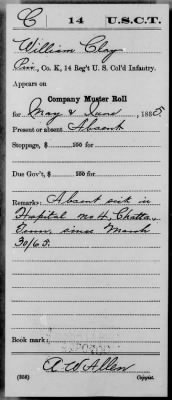 C 14 U.S.C.T.
William Clay
Priv., Co. K, 14 Reg't U. S. Col'd Infantry.
Appears on
Company Muster Roll
for May & June, 1865.
Present or absent Absent
Stoppage, $ 100 for
Due Gov't, $ 100 for
Remarks: Absent sick in
Hospital no 4, Chatta.
Tenn, since March
30/65.
Book mark:
A W Allen
(358) Copyist.